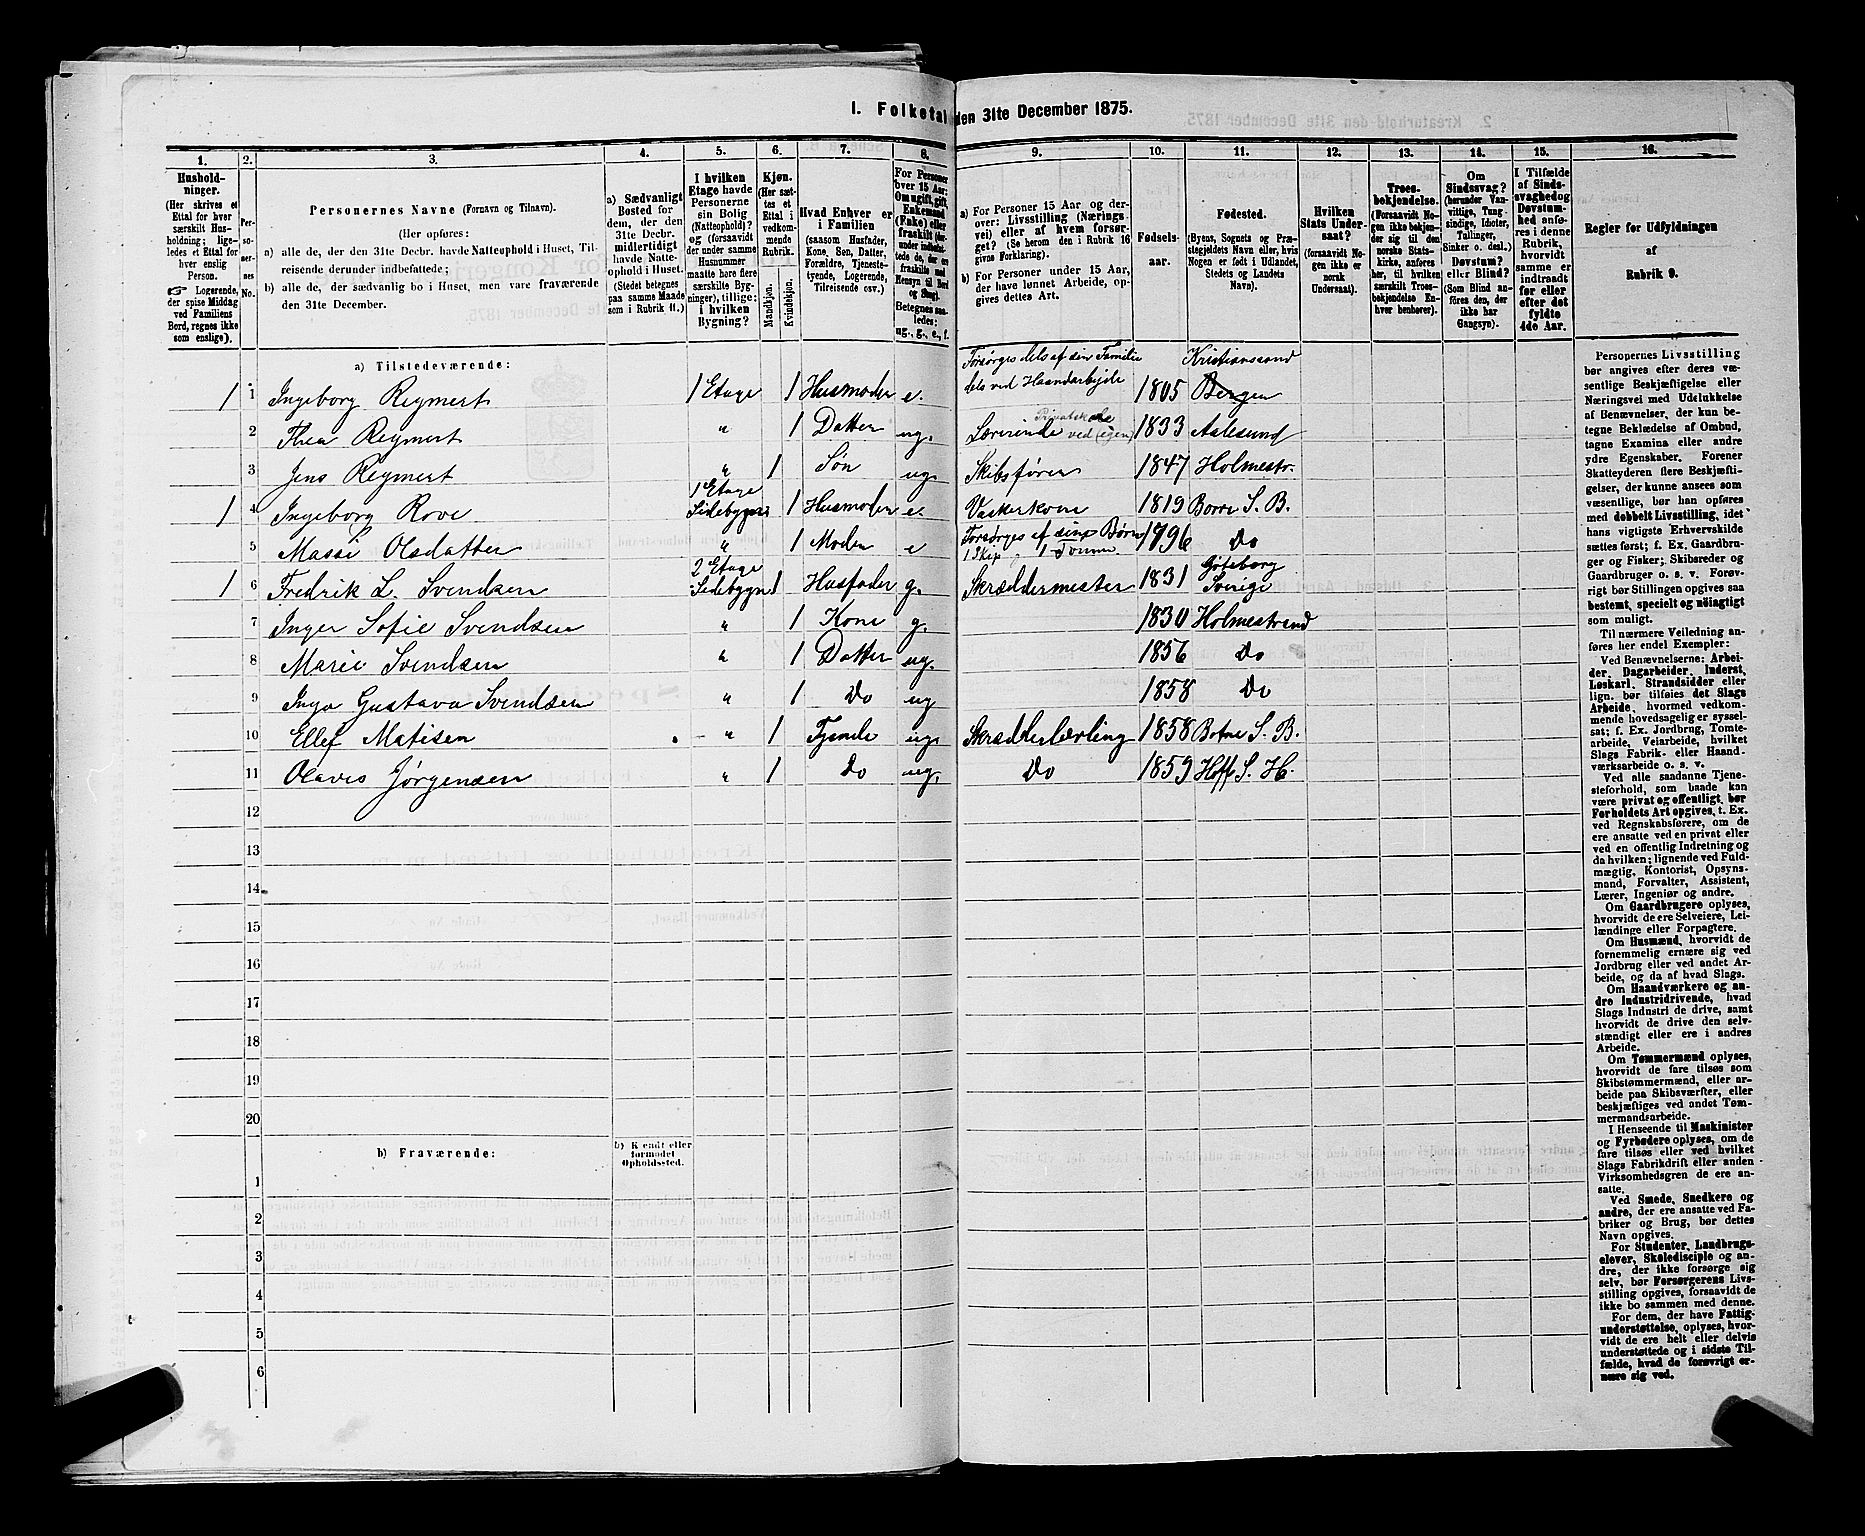 I. Folketal den 31te December 1875.
1. 2. 3. 4. 5. 6. 7. 8. 9. 10. 11. 12. 13. 14. 15. 16.
Hushold-
ninger.
(Her skrives et
Ettal for hver
særskilt Hus-
holdning; lige-
ledes et Ettal for
hver enslig
Person.
☛ Logerende,
der spise Middag
ved Familiens
Bord, regnes ikke
som enslige).
Per-
so-
ner-
nes
No.
Personernes Navne (Fornavn og Tilnavn).
(Her opføres:
a) alle de, der den 31te Decbr. havde Natteophold i Huset, Til-
reisende derunder indbefattede;
b) alle de, der sædvanlig bo i Huset, men vare fraværende
den 31te December.
a) Sædvanligt
Bosted for
dem, der den
31te Decbr.
midlertidigt
havde Natte-
ophold i Huset.
(Stedet betegnes
paa samme Maade
som i Rubrik 11.)
I hvilken
Etage havde
Personerne
sin Bolig
(Natteophold)?
og (forsaavidt
der under samme
Husnummer
maatte høre flere
særskilte Byg-
ninger), tillige:
i hvilken
Bygning?
Kjøn.
(Her sæt-
tes et
Ettal i
vedkom-
mende
Rubrik.
Mandkjøn.
Kvindekjøn.
Hvad Enhver er
i Familien
(saasom Husfader,
Kone, Søn, Datter,
Forældre, Tjeneste-
tyende, Logerende,
Tilreisende osv.)
For Personer
over 15 Aar:
Om ugift, gift,
Enkemand
(Enke) eller
fraskilt (her-
under indbefat-
tede de, der ere
fraskilte med
Hensyn til Bord
og Seng).
Betegnes saa-
ledes:
ug., g., e., f.
a) For Personer 15 Aar og der-
over: Livsstilling (Nærings-
vei) eller af hvem forsør-
get? (Se herom den i Rubrik 16
givne Forklaring).
b) For Personer under 15 Aar,
der have lønnet Arbeide, op-
gives dettes Art.
Fødsels-
aar.
Fødested.
(Byens, Sognets og Præ-
stegjeldets Navn eller, hvis
Nogen er født i Udlandet,
Stedets og Landets
Navn).
Hvilken
Stats Under-
saat?
(forsaavidt No-
gen ikke er
norsk
Undersaat).
Troes-
bekjendelse.
(Forsaavidt No-
gen ikke bekjen-
der sig til den
norske Stats-
kirke, anføres
her, til hvilken
særskilt Troes-
bekjendelse En-
hver henhører).
Om
Sindssvag?
(herunder Van-
vittige, Tung-
sindige, Idioter,
Tullinger,
Sinker o. desl.)
Døvstum?
eller Blind?
(Som Blind an-
føres den, der
ikke har
Gangsyn).
I Tilfælde
af Sinds-
svaghed og
Døvstum-
hed anfø-
res i denne
Rubrik,
hvorvidt
samme er
indtraadt
før eller
efter det
fyldte
4de Aar.
Regler for Udfyldningen
af
Rubrik 9.
a) Tilstedeværende:
Forsørges dels af sin Familie Kristianssund
dels ved Haandarbejde
1 1 Ingeborg Reymert 1 Etage 1 Husmoder e. 1805 Bergen
Privatskole
2 Thea Reymert " 1 Datter ug. Lærerinde ved (egen) 1833 Aalesund
3 Jens Reymert " 1 Søn ug. Skibsfører 1847 Holmestr.
1 Etage
1 4 Ingeborg Rove Sidebygn. 1 Husmoder e. Vaskerkone 1819 Borre S. B.
5 Massi Olsdatter " 1 Moder e Forsørges af sine Børn 1796 Do
2 Etage Göteborg
1 6 Fredrik L. Svendsen Sidebygn 1 Husfader g. Skræddermester 1831 Sverige
7 Inger Sofie Svendsen " 1 Kone g. 1830 Holmestrand
8 Marie Svendsen " 1 Datter ug. 1856 Do
9 Inga Gustava Svendsen " 1 Do ug 1858 Do
10 Ellef Matisen - " 1 Tjende ug. Skrædderlærling 1858 Botne S. B.
11 Olaves Jørgensen " 1 Do ug. Do 1859 Hoff S. H.
12
13
14
15
16
17
18
19
20
b) Fraværende:
b) Kjendt eller
formodet
Opholdssted.
1
2
3
4
5
6
Personernes Livsstilling
bør angives efter deres væ-
sentlige Beskjæftigelse eller
Næringsvei med Udelukkelse
af Benævnelser, der kun be-
tegne Beklædelse af Ombud,
tagne Examina eller andre
ydre Egenskaber. Forener
Skatteyderen flere Beskjæfti-
gelser, der kunne ansees som
væsentlige, bør han opføres
med dobbelt Livsstilling, idet
hans vigtigste Erhvervskilde
sættes først; f. Ex. Gaardbru-
ger og Fisker; Skibsreder og
Gaardbruger o. s. v. Forøv-
rigt bør Stillingen opgives saa
bestemt, specielt og nøiagtigt
som muligt.
Til nærmere Veiledning an-
føres her endel Exempler:
Ved Benævnelserne: Arbei-
der, Dagarbeider, Inderst,
Løskarl, Strandsidder eller
lign. bør tilføies det Slags
Arbeide, hvormed vedkom-
mende hovedsagelig er syssel-
sat; f. Ex. Jordbrug, Tomte-
arbeide, Veiarbeide, hvilket
Slags Fabrik- eller Haand-
værksarbeide o. s. v.
Ved alle saadanne Tjene-
steforhold, som baade kan
være privat og offentligt, bør
Forholdets Art opgives, t. Ex.
ved Regnskabsførere, om de
ere ansatte ved en privat eller
ved en offentlig Indretning og
da hvilken; lignende ved Fuld-
mægtig, Kontorist, Opsyns-
mand, Forvalter, Assistent,
Lærer, Ingeniør og andre.
Om Gaardbrugere oplyses,
hvorvidt de ere Selveiere, Lei-
lændinge eller Forpagtere.
Om Husmænd, hvorvidt de
fornemmelig ernære sig ved
Jordbrug eller ved andet Ar-
beide, og da af hvad Slags.
Om Haandværkere og an-
dre Industridrivende, hvad
Slags Industri de drive, samt
hvorvidt de drive den selv-
stændigt eller ere i andres
Arbeide.
Om Tømmermænd oplyses,
hvorvidt de fare tilsøs som
Skibstømmermænd, eller ar-
beide paa Skibsværfter, eller
beskjæftiges ved andet Tøm-
mermandsarbeide.
I Henseende til Maskinister
og Fyrbødere oplyses, om de
fare tilsøs eller ved hvilket
Slags Fabrikdrift eller anden
Virksomhedsgren de ere an-
satte.
Ved Smede, Snedkere og
andre, der ere ansatte ved Fa-
briker og Brug, bør dettes
Navn opgives.
For Studenter, Landbrugs-
elever, Skoledisciple og an-
dre, der ikke forsørge sig
selv, bør Forsørgerens Livs-
stilling opgives, forsaavidt de
ikke bo sammen med denne.
For dem, der have Fattig-
understøttelse, oplyses, hvor-
vidt de ere helt eller delvis
understøttede og i sidste Til-
fælde, hvad de forøvrigt er-
nære sig ved.